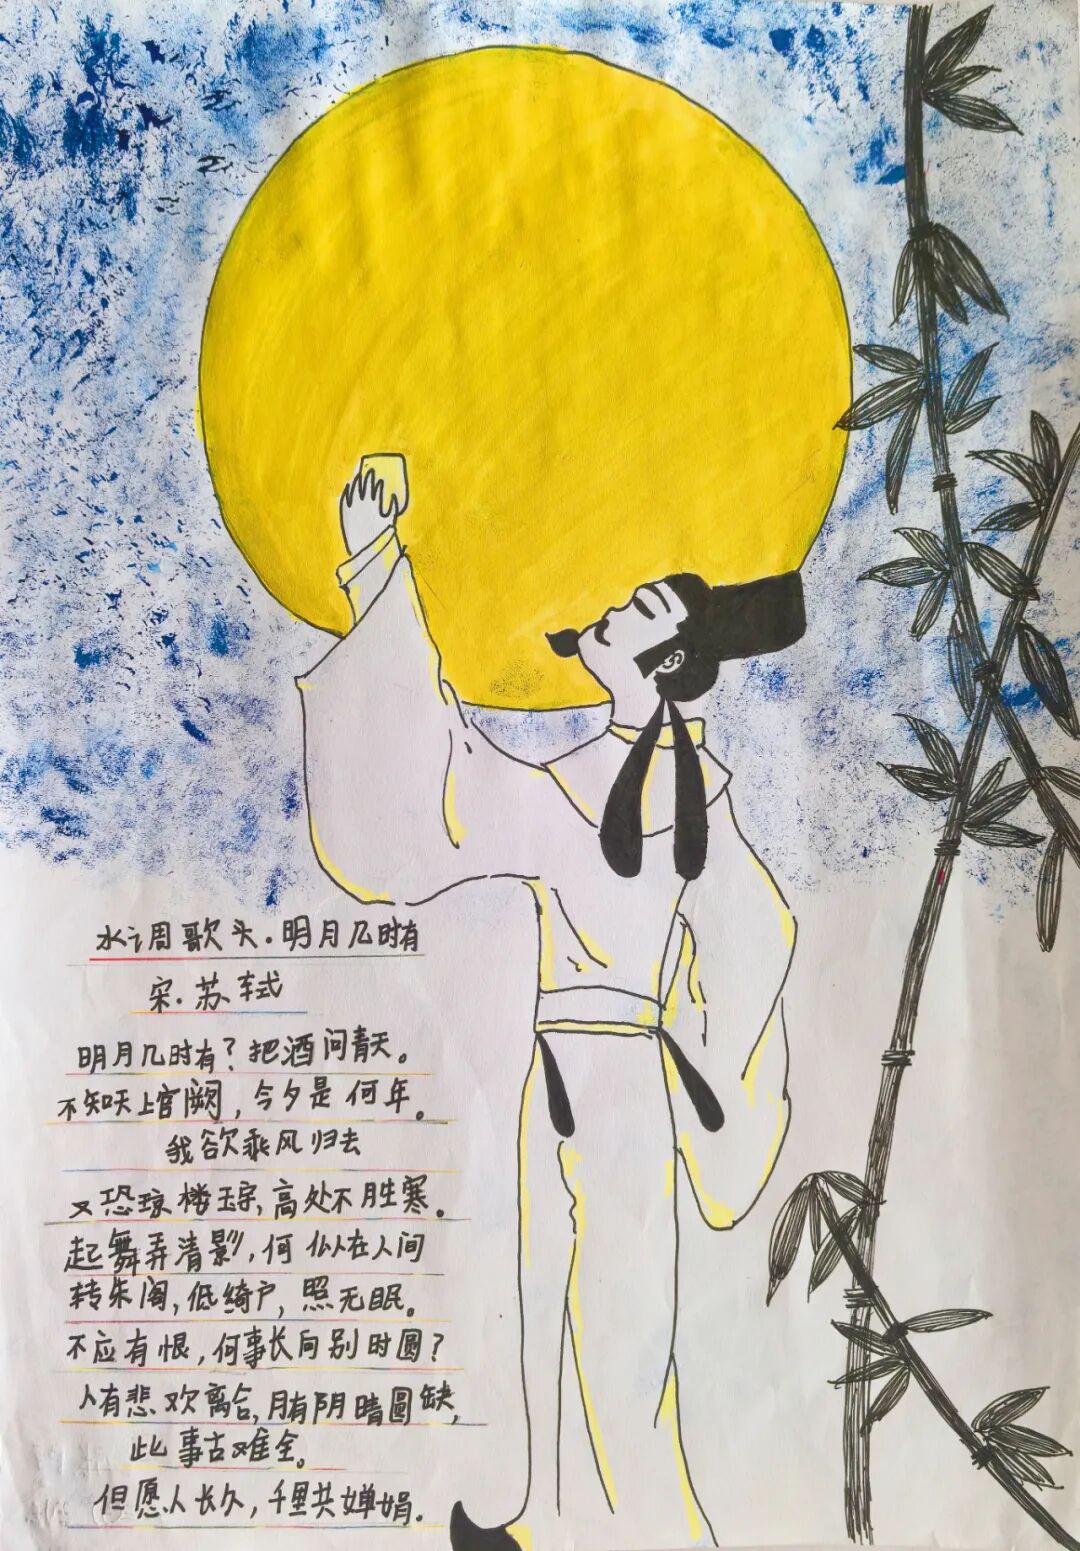 水调歌头·明月几时有
宋·苏轼
明月几时有？把酒问青天。
不知天上宫阙，今夕是何年。
我欲乘风归去
又恐琼楼玉宇，高处不胜寒。
起舞弄清影，何似在人间
转朱阁，低绮户，照无眠。
不应有恨，何事长向别时圆？
人有悲欢离合，月有阴晴圆缺，
此事古难全。
但愿人长久，千里共婵娟。